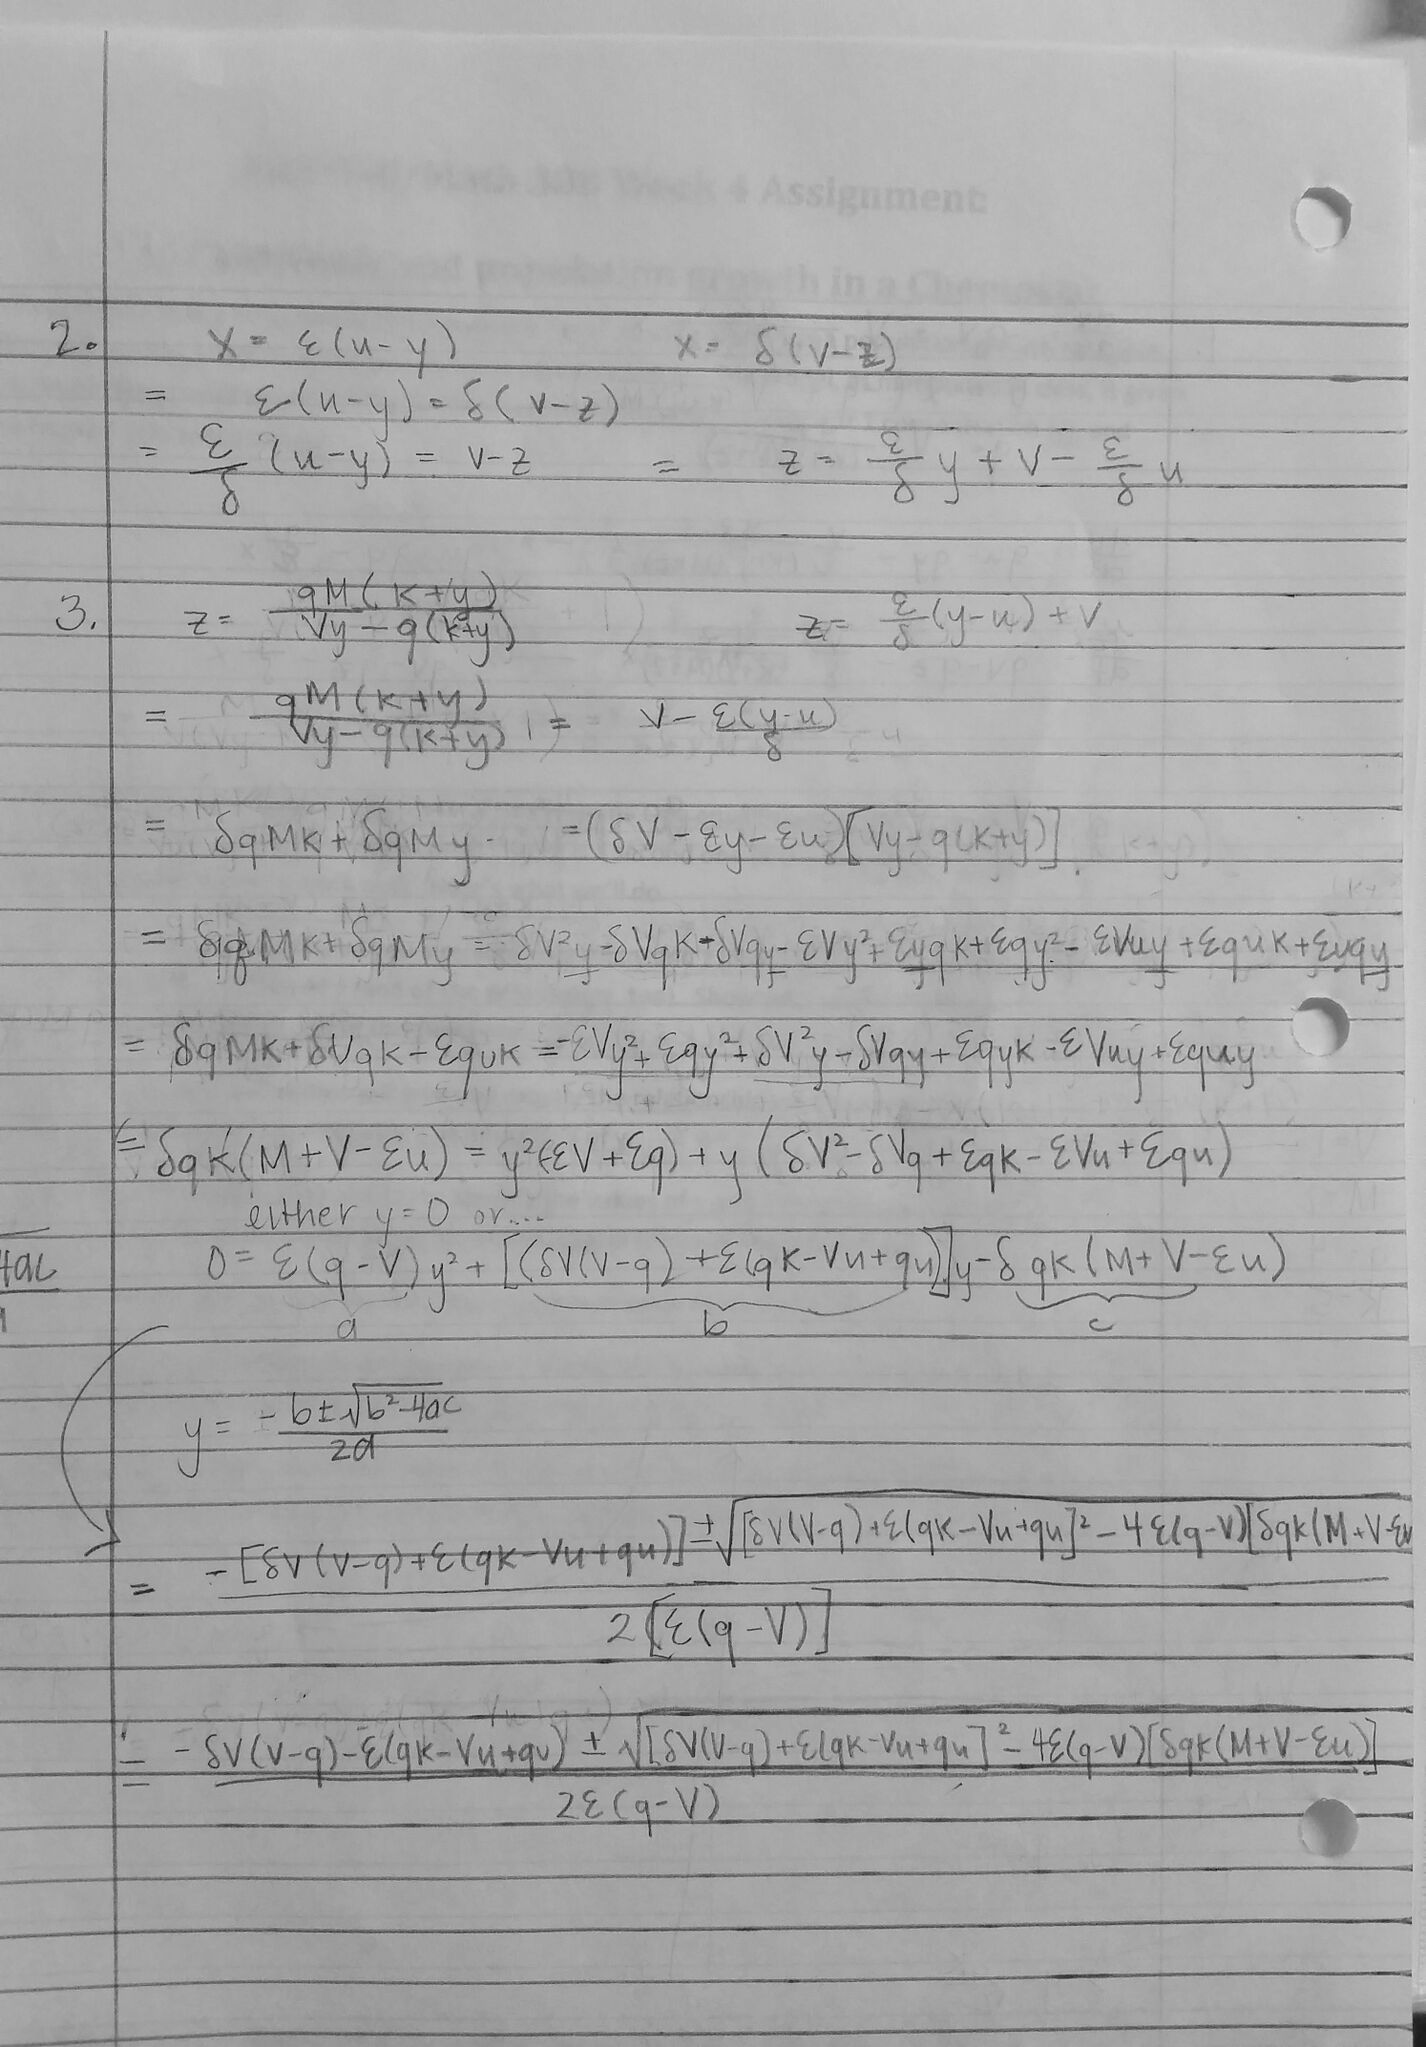 Week 4 Assignment
growth in a
2. x = ε(u-y) x = δ(v-z)
= ε(u-y) = δ(v-z)
= ε/δ (u-y) = v-z = z = ε/δ y + v - ε/δ u
3. z = qM(k+y) / Vy-q(k+y) z = ε/δ (y-u) + v
= qM(k+y) / Vy-q(k+y) = v - ε(y-u)/δ
= δqMk + δqMy = (δV - εy - εu)[Vy-q(k+y)]
= δqMk + δqMy = δV²y - δVqk - δVqy - εVy² + εyqk + εqy² - εVuy + εquk + εuqy
= δqMk + δVqk - εquk = -εVy² + εqy² + δV²y - δVqy + εqyk - εVuy + εquy
= δqk(M+V-εu) = y²(-εV+εq) + y(δV²-δVq+εqk-εVu+εqu)
either y=0 or...
4ac 0 = ε(q-V)y² + [(δV(V-q) + ε(qk-Vu+qu)]y - δqk(M+V-εu)
a b c
y = -b±√b²-4ac / 2a
= -[δV(V-q)+ε(qk-Vu+qu)] ± √[δV(V-q)+ε(qk-Vu+qu]² - 4ε(q-V)[δqk(M+V-εu
2[ε(q-V)]
= -δV(V-q)-ε(qk-Vu+qu) ± √[δV(V-q)+ε(qk-Vu+qu]² - 4ε(q-V)[δqk(M+V-εu)]
2ε(q-V)